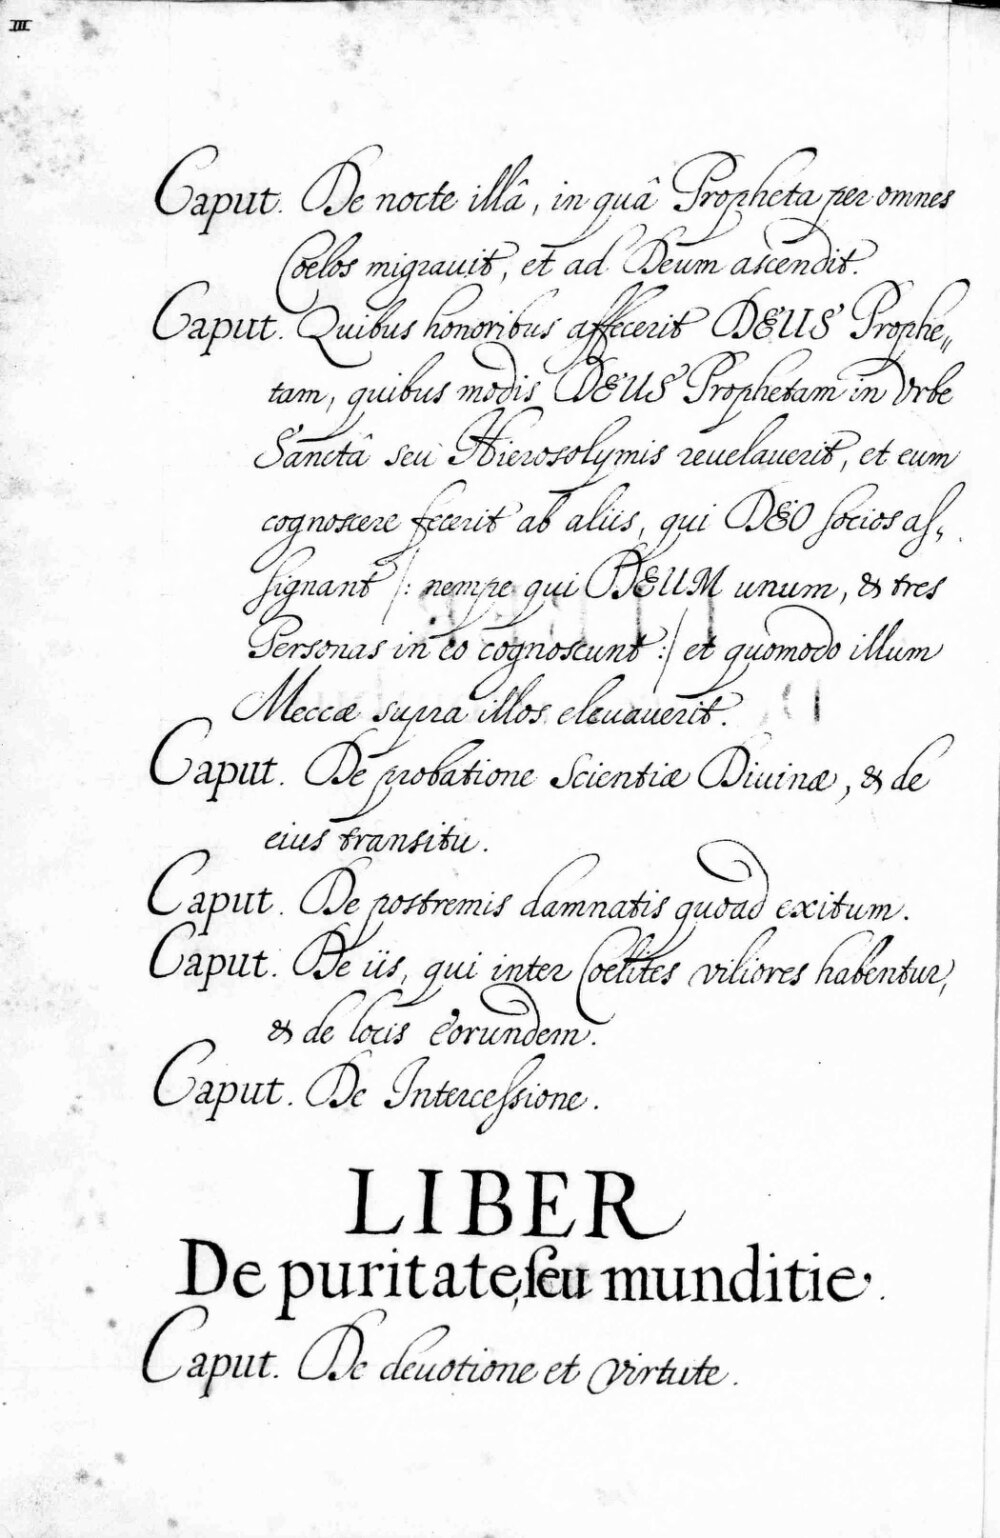 III
Caput. De nocte illâ, in quâ Propheta per omnes
Coelos migrauit, et ad Deum ascendit.
Caput. Quibus honoribus affecerit DEUS Prophe„
tam, quibus modis DEUS Prophetam in Vrbe
Sanctâ seu Hierosolymis reuelauerit, et eum
cognoscere fecerit ab aliis, qui DEO socios as„
signant /: nempe qui DEUM unum, & tres
Personas in eo cognoscunt :/ et quomodo illum
Meccæ supra illos eleuauerit.
Caput. De probatione Scientiæ Diuinæ, & de
eius transitu.
Caput. De postremis damnatis quoad exitum.
Caput. De iis, qui inter Coelites viliores habentur,
& de locis eorundem.
Caput. De Intercessione.
LIBER
De puritate, seu munditie.
Caput. De deuotione et virtute.